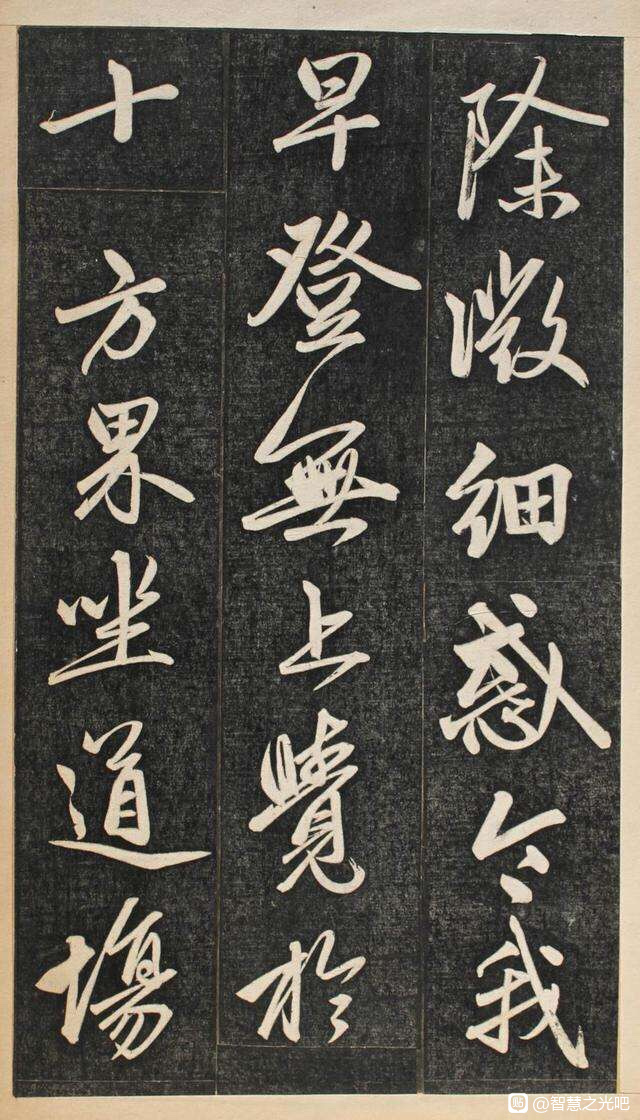 除微细惑令我
早登無上覺於
十方界坐道場
@智慧之光吧